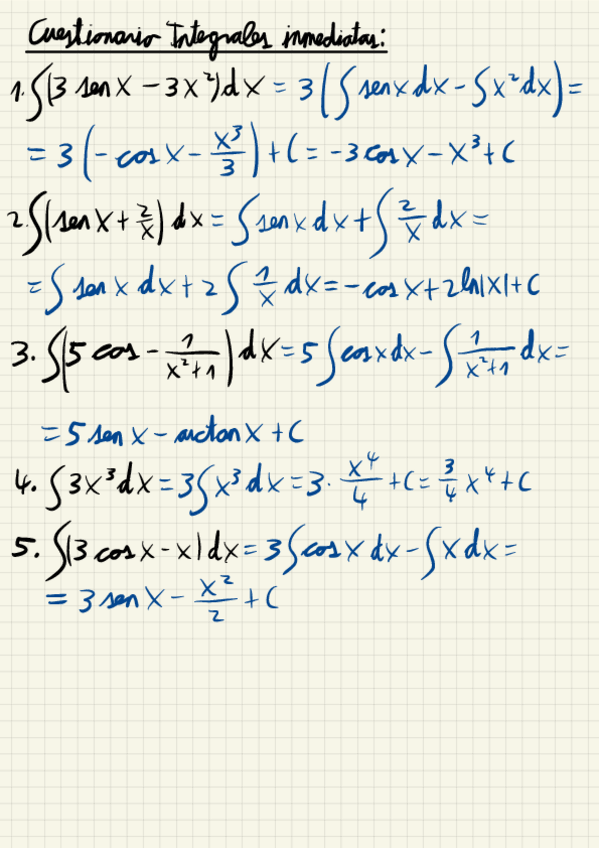 Cuestionario Integrales inmediatas:
1. ∫(3 sen x − 3x²)dx = 3(∫sen x dx − ∫x² dx) =
= 3(−cos x − x³/3) + C = −3 cos x − x³ + C
2. ∫(sen x + 2/x) dx = ∫sen x dx + ∫2/x dx =
= ∫ sen x dx + 2 ∫ 1/x dx = −cos x + 2 ln|x| + C
3. ∫(5 cos − 1/(x²+1)) dx = 5∫cos x dx − ∫1/(x²+1) dx =
= 5 sen x − arctan x + C
4. ∫3x³ dx = 3∫x³ dx = 3 · x⁴/4 + C = 3/4 x⁴ + C
5. ∫(3 cos x − x) dx = 3∫cos x dx − ∫x dx =
= 3 sen x − x²/2 + C